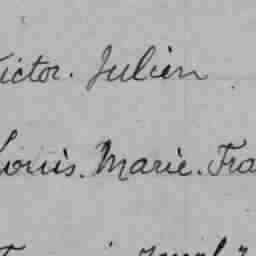 Victor. Julien
Louis. Marie. Fra